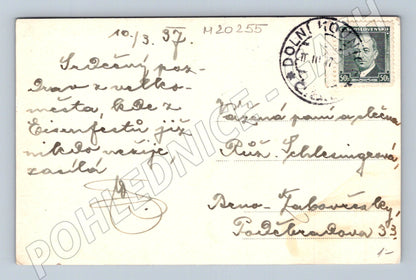 10/3. 37.
M20255
Srdečný poz-
drav z velko-
města, kde z
Eisenfestů již
nikdo nežije,
zasílá
DOLNÍ
ČESKOSLOVENSKO
50h 50h
Vážená paní a slečna
Růž. Schlesingrová
Brno - Žabovřesky,
Poděbradova 33.
1-
POHLEDNICE